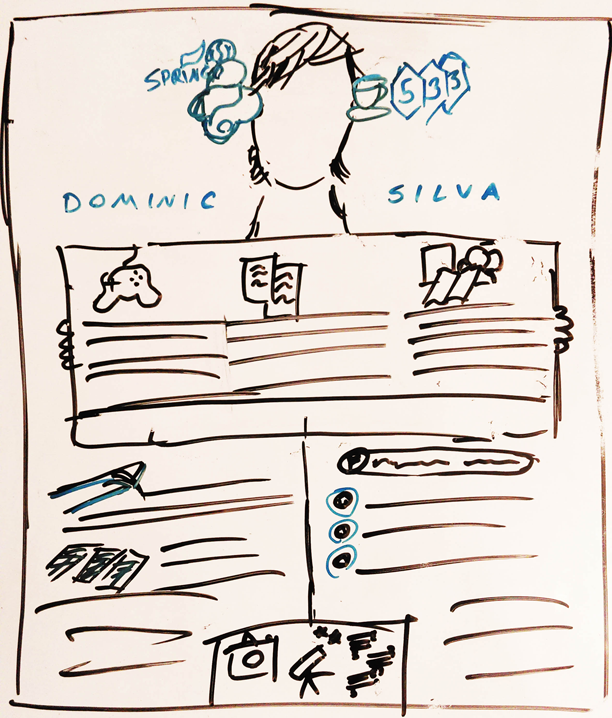 SPRING
533
DOMINIC SILVA